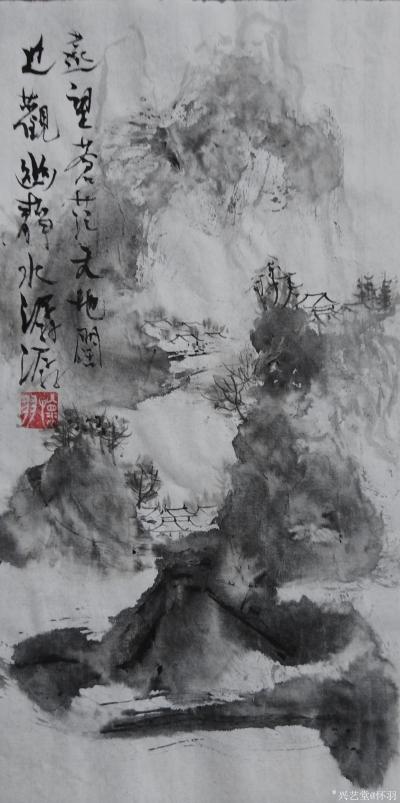 遥望苍茫天地阔
近觀幽静水潺潺
懷羽
*兴艺堂@怀羽